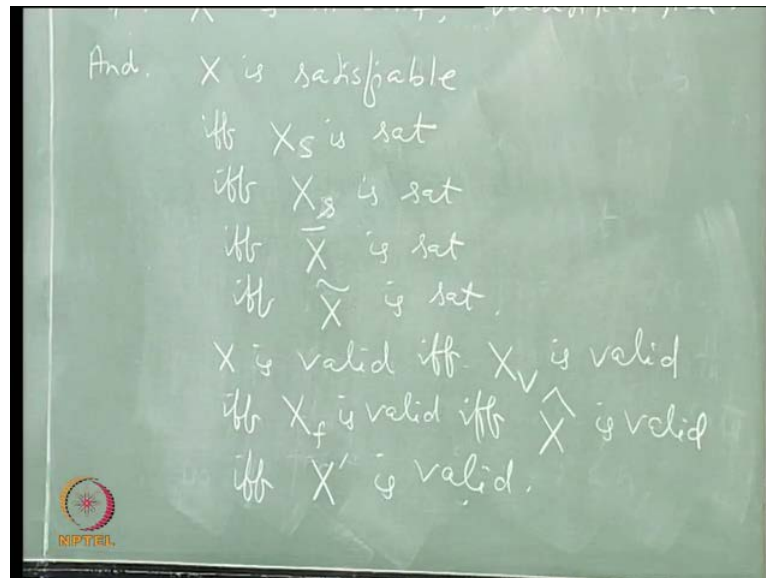 X is
And. X is satisfiable
iff X_S is sat
iff X_s is sat
iff X̄ is sat
iff X̃ is sat.
X is valid iff X_v is valid
iff X_f is valid iff X̂ is valid
iff X′ is valid.
NPTEL